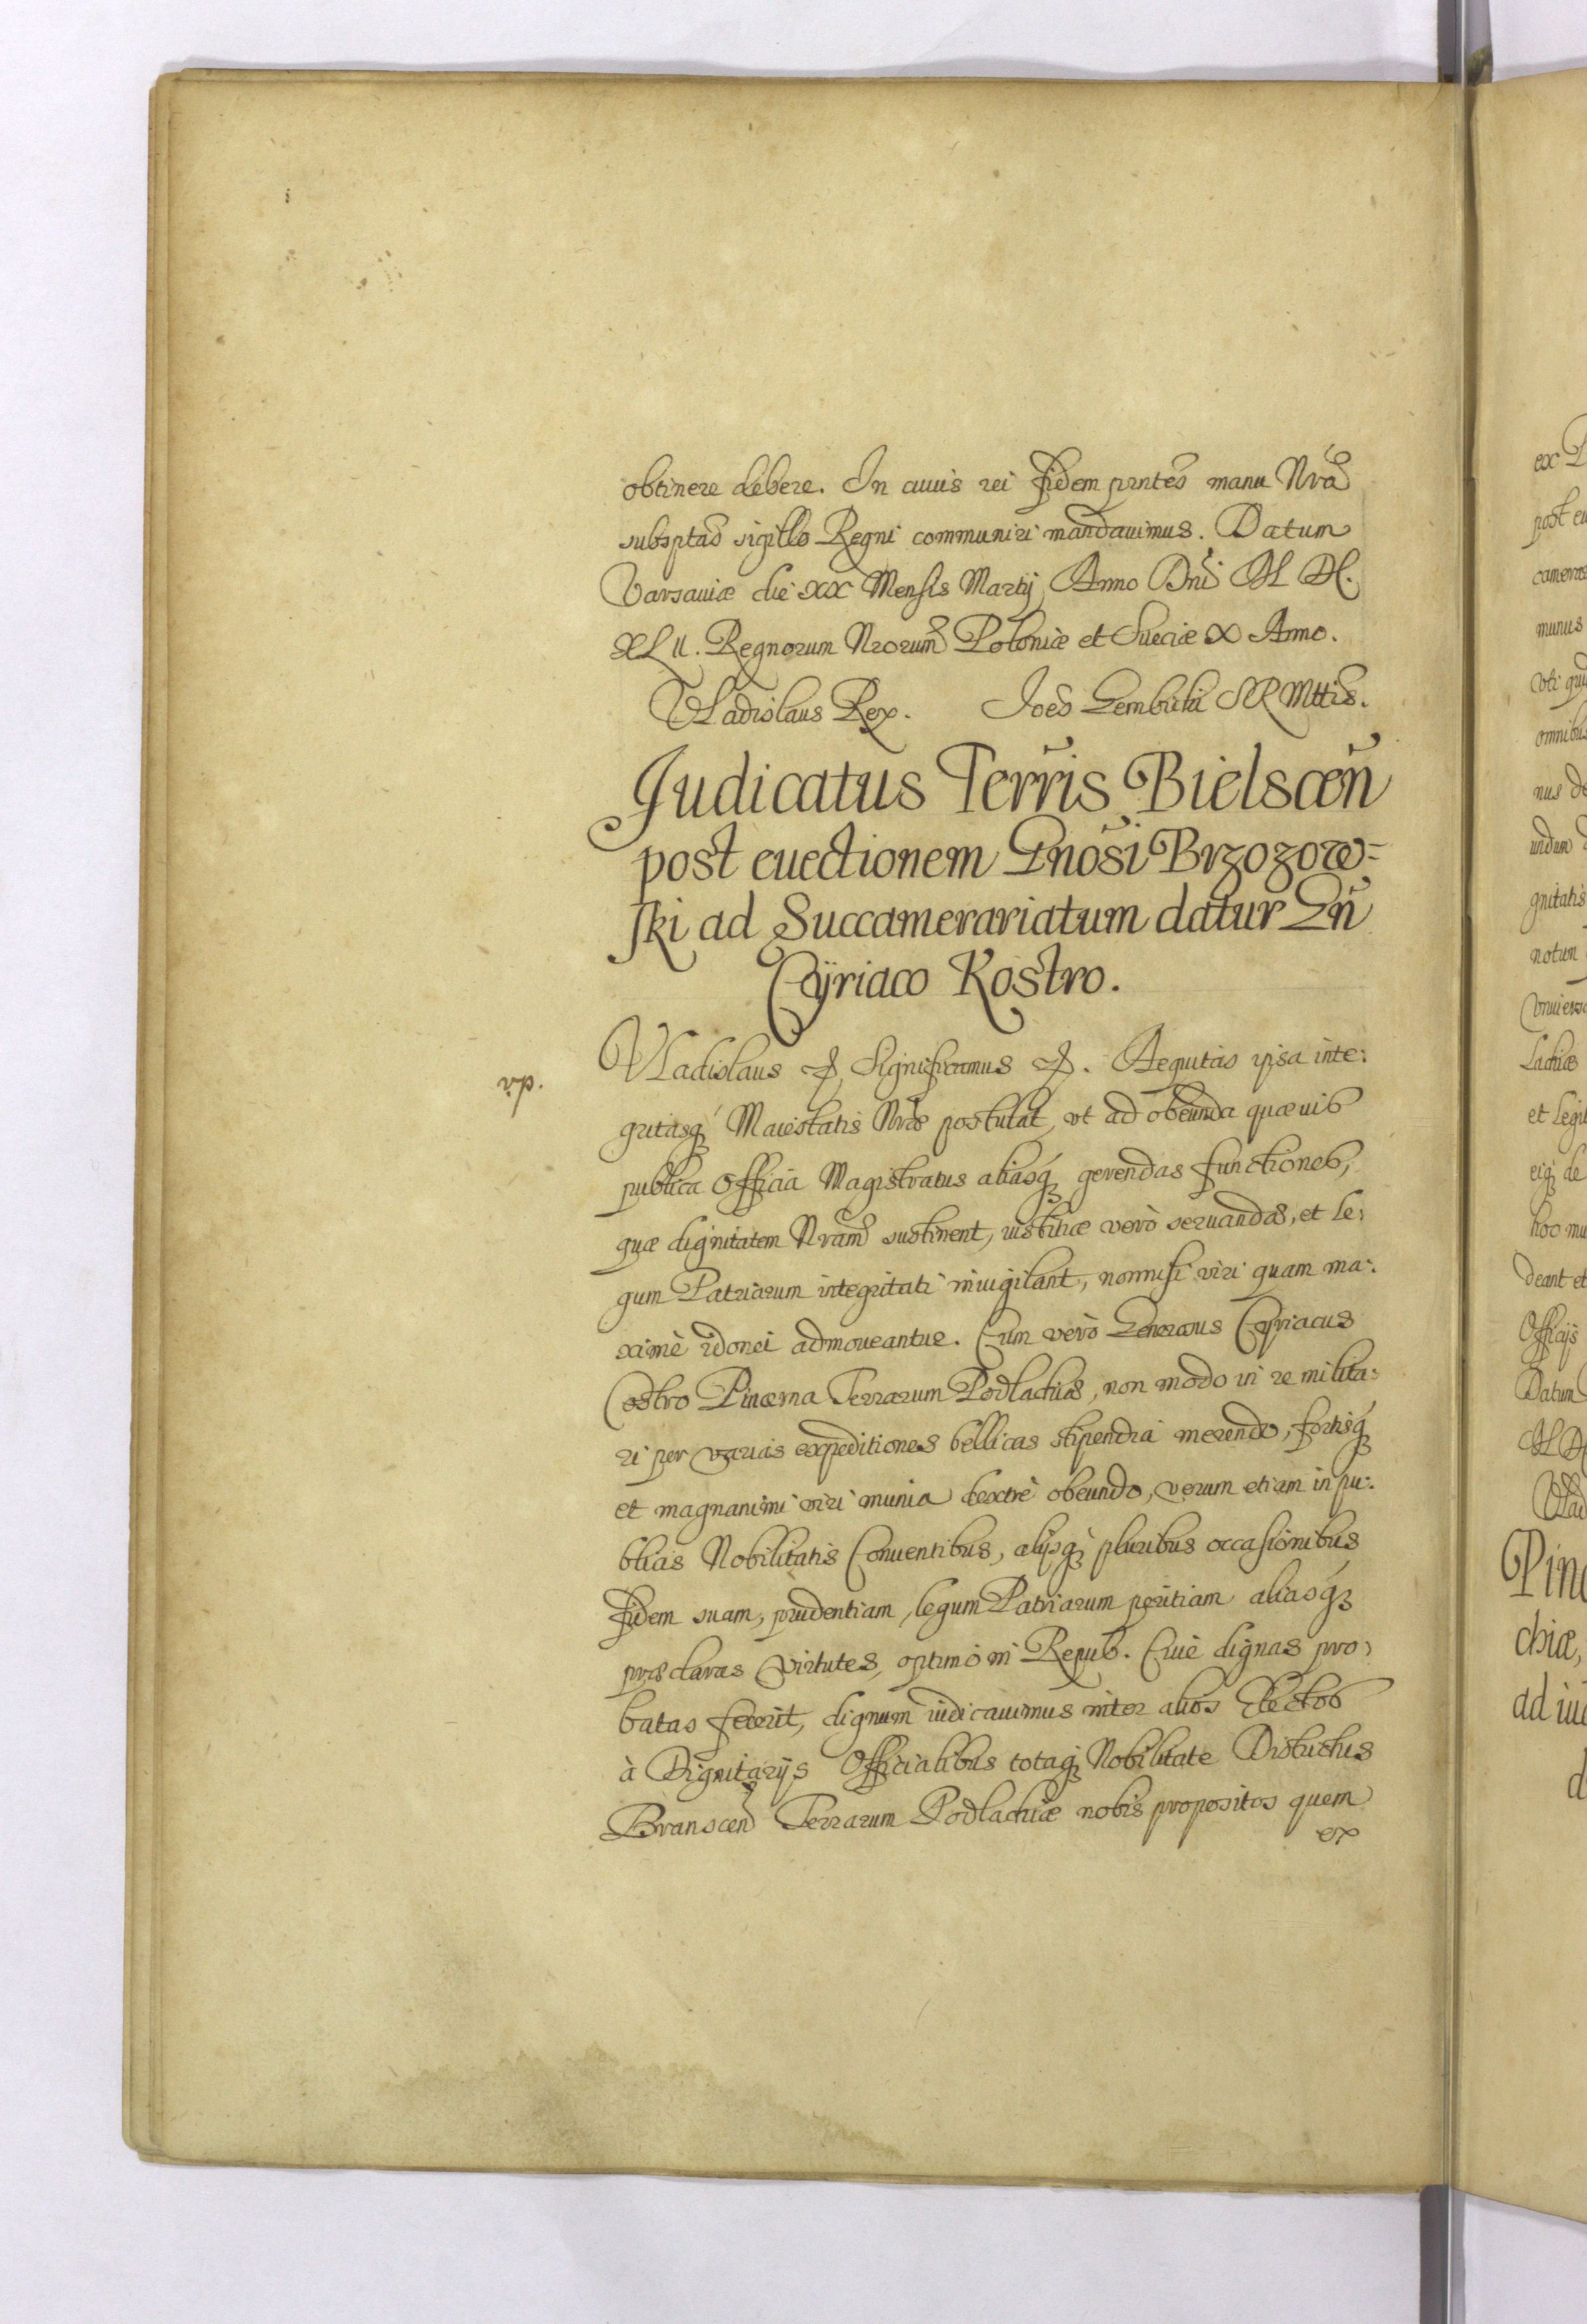 obtinere debere. In cuius rei fidem pr̃ntes manu Nr̃a
subsptas sigillo Regni communiri mandauimus. Datum
Varsauiæ die XX Mensis Martij Anno Dn̄i M DC.
XLII. Regnorum Nr̃orum Poloniæ et Sueciæ X Anno.
Vladislaus Rex. Joẽs Gembicki SRMttis.
Judicatus Terr̃is Bielscẽn
post euectionem Gnõsi Brzozow=
ski ad Succamerariatum datur Gñ
Cÿriaco Kostro.
Vladislaus &. Significamus &. Aequitas ipsa inte:
gritasq; Maiestatis Nr̃æ postulat, vt ad obeunda quæuis
publica Officia Magistratus aliasq; gerendas functiones,
quæ dignitatem Nr̃am sustinent, iustitiæ verò seruandæ, et le:
gum Patriarum integritati inuigilant, nonnisi viri quam ma:
ximè idonei admoueantur. Cum verò Generosus Cyriacus
Costro Pincerna Terrarum Podlachiæ, non modo in re milita:
ri per varias expeditiones bellicas stipendia merendo, fortisq;
et magnanimi viri munia dextrè obeundo, verum etiam in pu:
blicis Nobilitatis Conuentibus, alijsq; pluribus occasionibus
fidem suam, prudentiam, legum Patriarum peritiam aliasq;
præclaras virtutes, optimo in Repub. Ciue dignas pro:
batas fecerit, dignum iudicauimus inter alios Electos
à Dignitarijs Officialibus totaq; Nobilitate Districtus
Branscen Terrarum Podlachiæ nobis propositos quem
ex